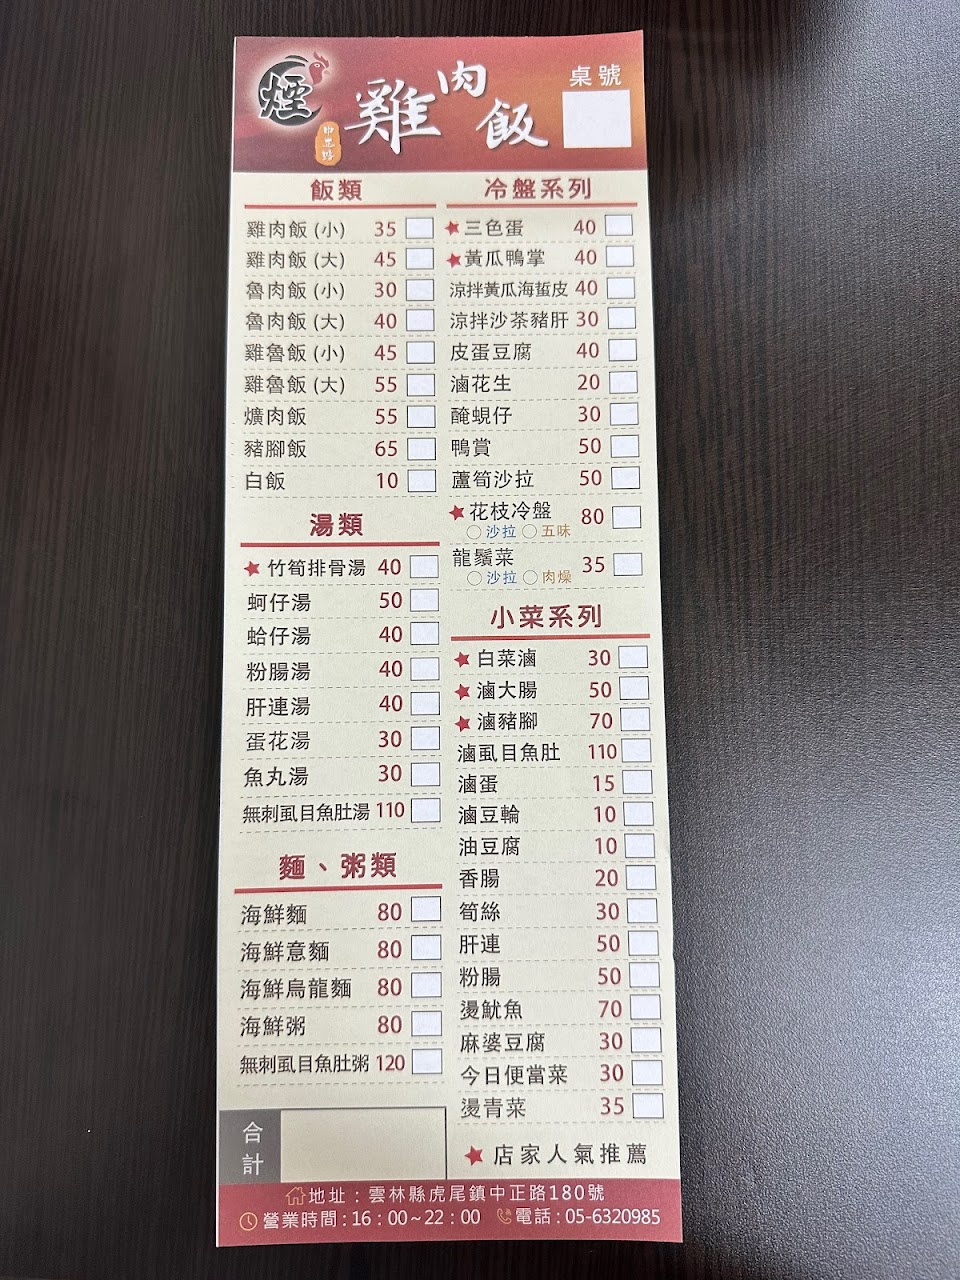 煙
中正路
雞肉飯
桌號
飯類
雞肉飯(小) 35
雞肉飯(大) 45
魯肉飯(小) 30
魯肉飯(大) 40
雞魯飯(小) 45
雞魯飯(大) 55
爌肉飯 55
豬腳飯 65
白飯 10
湯類
★竹筍排骨湯 40
蚵仔湯 50
蛤仔湯 40
粉腸湯 40
肝連湯 40
蛋花湯 30
魚丸湯 30
無刺虱目魚肚湯 110
麵、粥類
海鮮麵 80
海鮮意麵 80
海鮮烏龍麵 80
海鮮粥 80
無刺虱目魚肚粥 120
合計
冷盤系列
★三色蛋 40
★黃瓜鴨掌 40
涼拌黃瓜海蜇皮 40
涼拌沙茶豬肝 30
皮蛋豆腐 40
滷花生 20
醃蜆仔 30
鴨賞 50
蘆筍沙拉 50
★花枝冷盤 80
○沙拉 ○五味
龍鬚菜 35
○沙拉 ○肉燥
小菜系列
★白菜滷 30
★滷大腸 50
★滷豬腳 70
滷虱目魚肚 110
滷蛋 15
滷豆輪 10
油豆腐 10
香腸 20
筍絲 30
肝連 50
粉腸 50
燙魷魚 70
麻婆豆腐 30
今日便當菜 30
燙青菜 35
★店家人氣推薦
地址:雲林縣虎尾鎮中正路180號
營業時間:16:00~22:00 電話:05-6320985